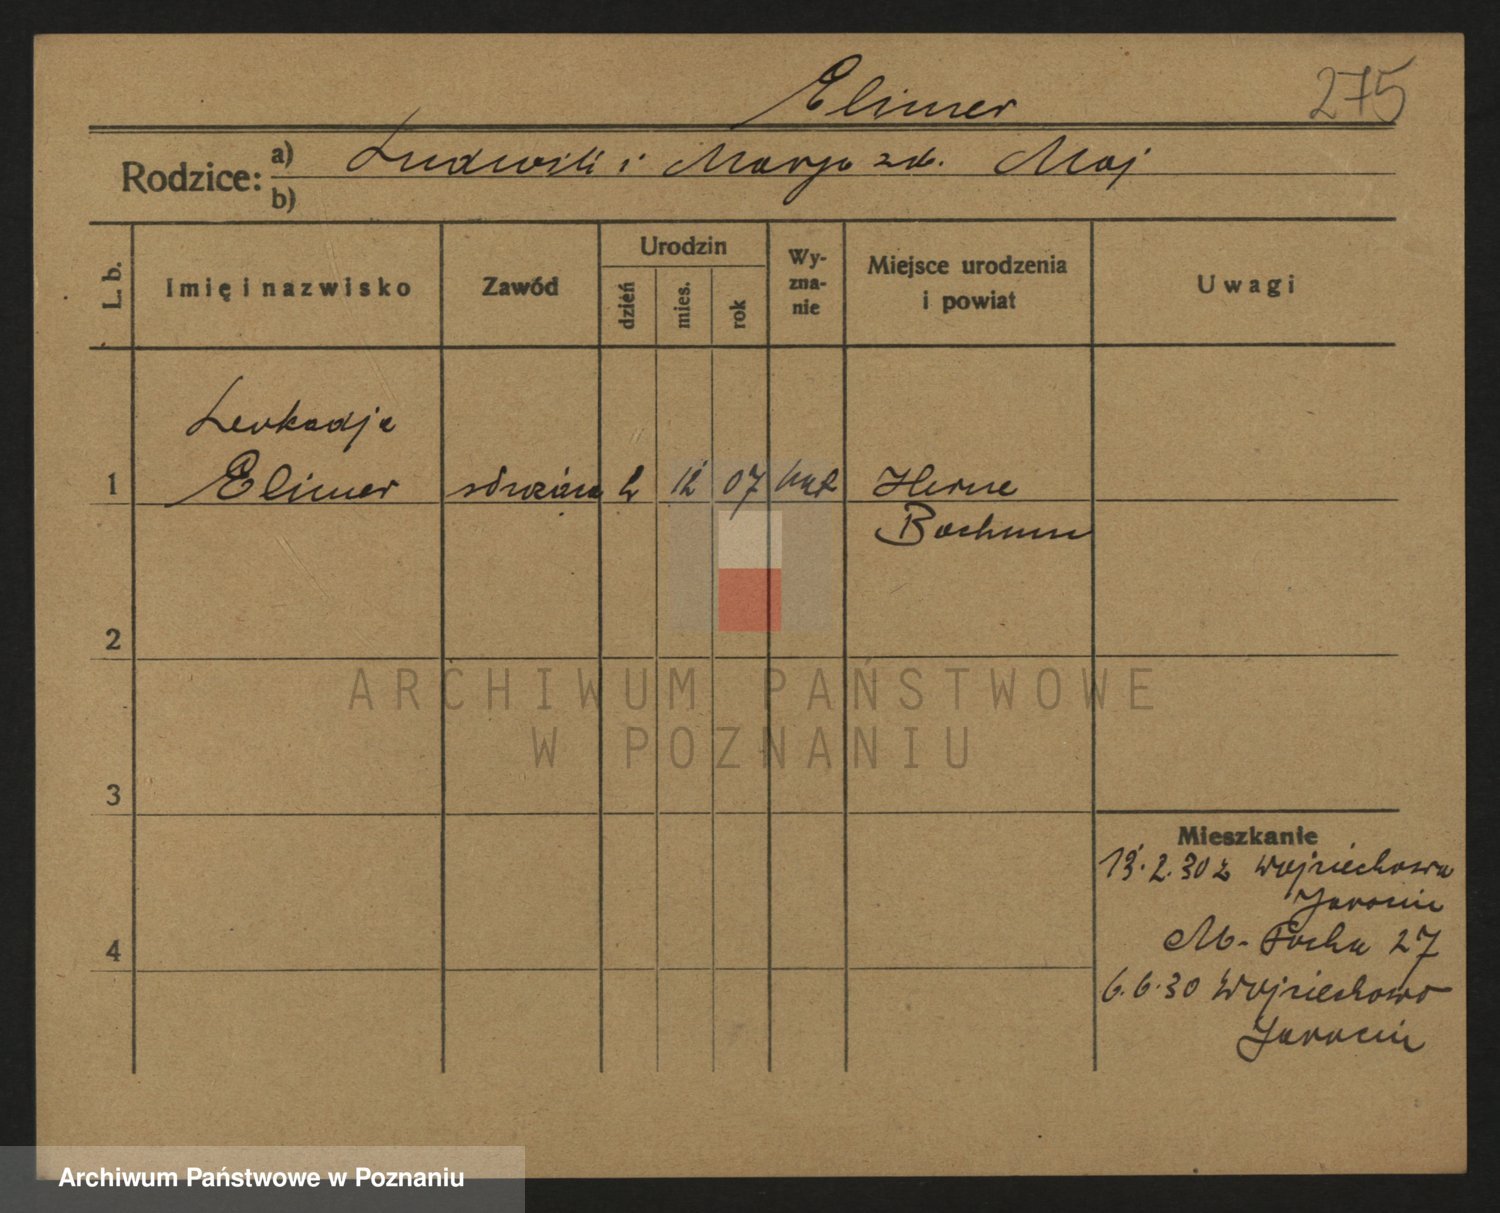 275
Elimer
Rodzice: a) Ludwik i Marja zd. Maj
b)
L. b.
Imię i nazwisko
Zawód
Urodzin
dzień
mies.
rok
Wy-
zna-
nie
Miejsce urodzenia
i powiat
Uwagi
Leokadja
1 Elimer 2 12 07 kat Herne
Bochum
2
3
4
Mieszkanie
13.2.30 z Wojciechowa
Jarocin
M. Focha 27
6.6.30 Wojciechowo
Jarocin
ARCHIWUM PAŃSTWOWE
W POZNANIU
Archiwum Państwowe w Poznaniu